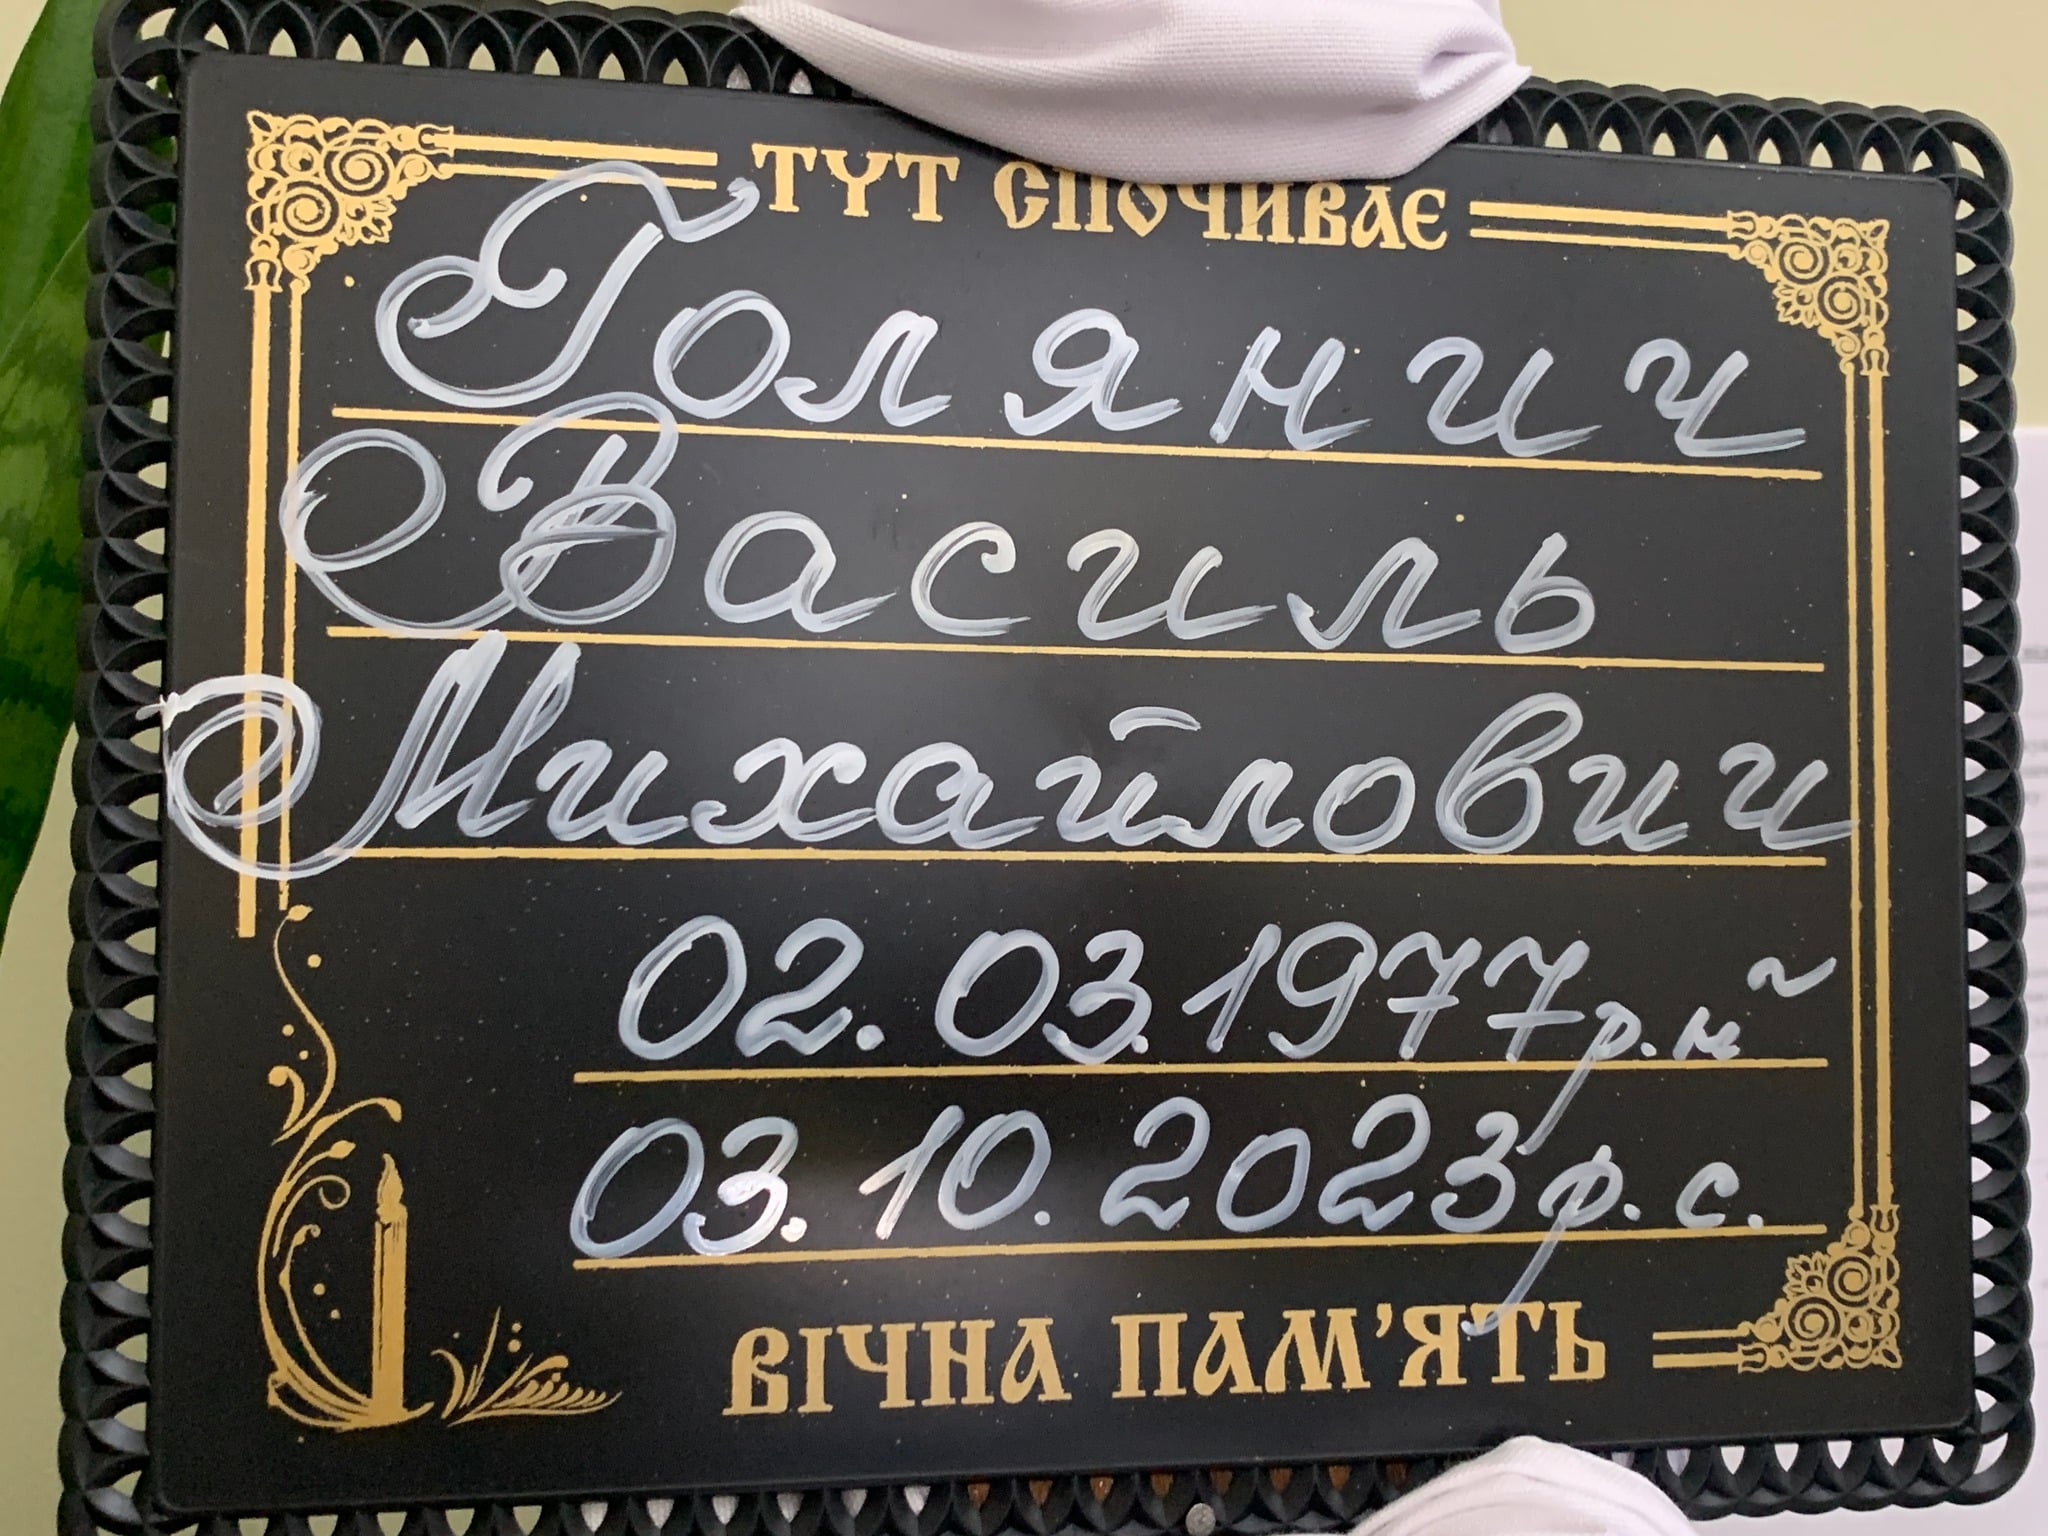 ТУТ СПОЧИВАЄ
Голянич
Василь
Михайлович
02.03.1977р.н
03.10.2023р.с.
ВІЧНА ПАМ'ЯТЬ